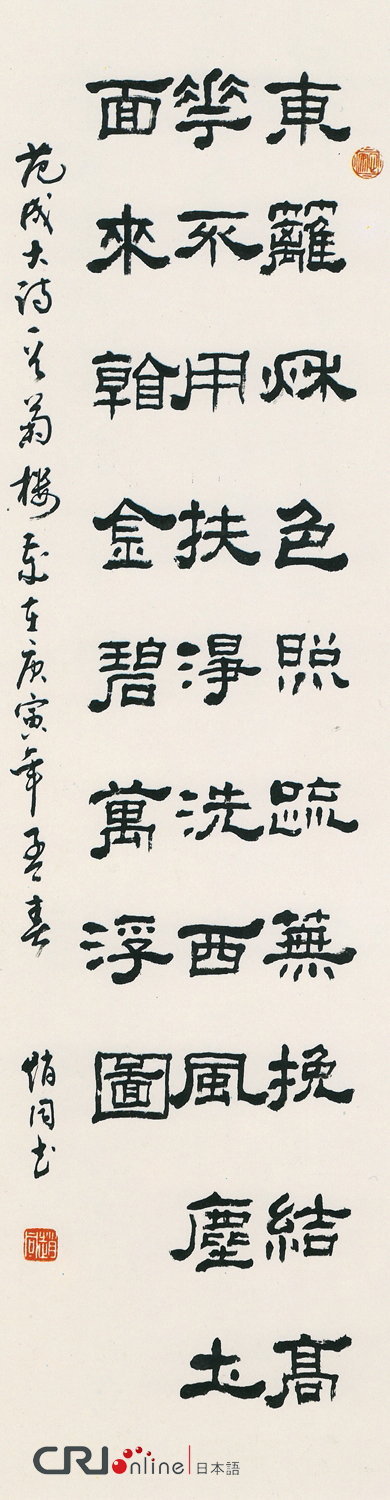 東籬秋色照疏蕪挽結高
華不用扶淨洗西風塵土
面來看金碧萬浮圖
范成大诗一首菊楼录在庚寅年孟春
趙同书
CRI online 日本語